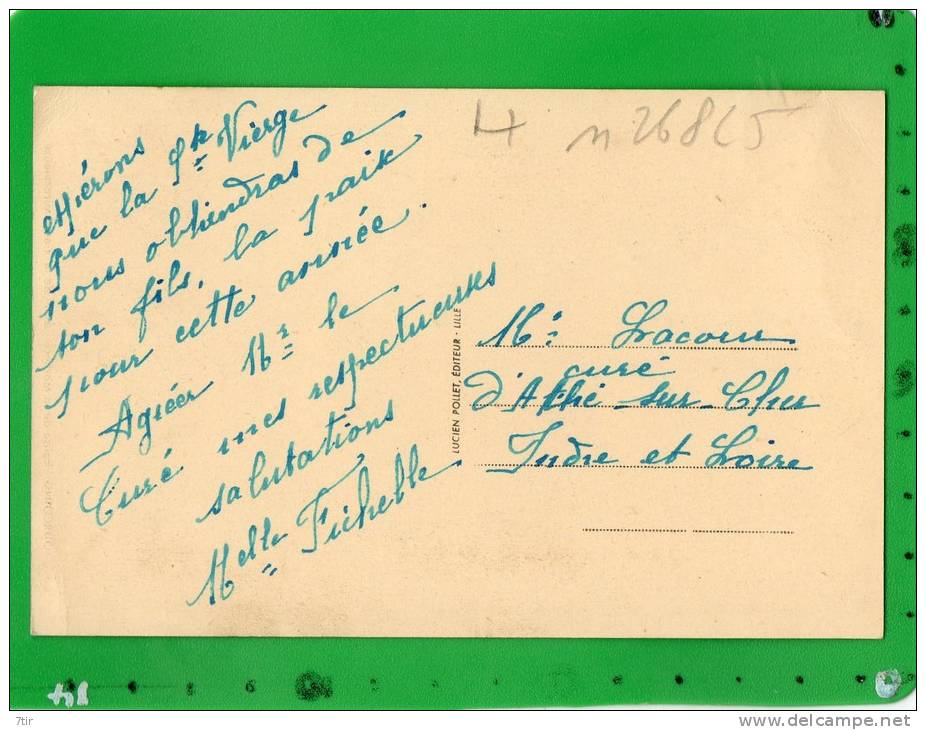 espérons
que la Ste Vierge
nous obtiendras de
son fils, la paix
pour cette année.
Agréer Mr le
Curé mes respectueuses
salutations
Melle Fichelle
H n 26865
LUCIEN POLLET, ÉDITEUR - LILLE
Mr: Lacour
curé
d'Athé-sur-Cher
Indre et Loire
14
7tir
www.delcampe.net